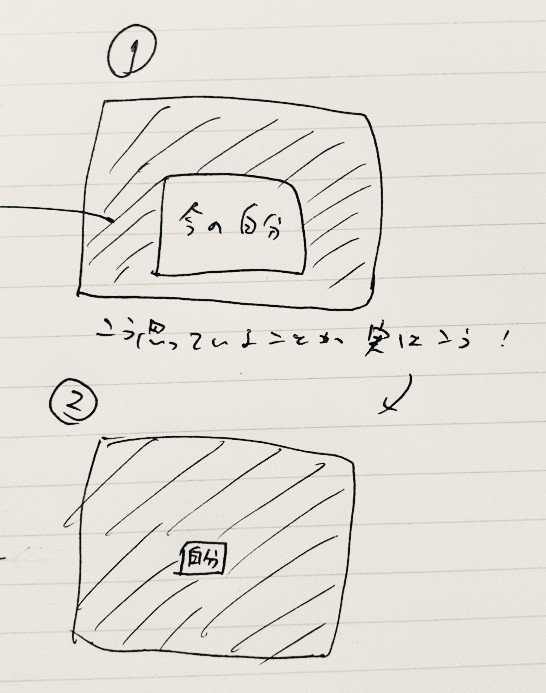 ①
今の自分
こう思っていることが実はこう！
②
自分